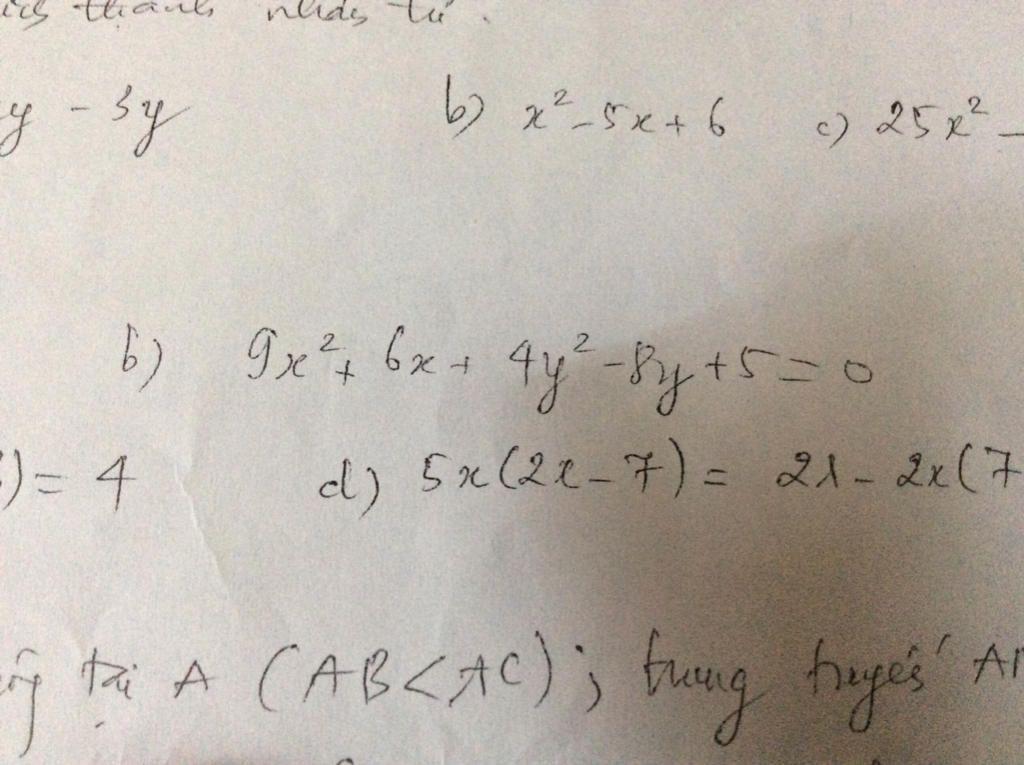 thành nhân tử.
y - 3y b) x² - 5x + 6 c) 25x² -
b) 9x² + 6x + 4y² - 8y + 5 = 0
) = 4 d) 5x(2x - 7) = 21 - 2x(7
tại A (AB < AC); trung tuyến